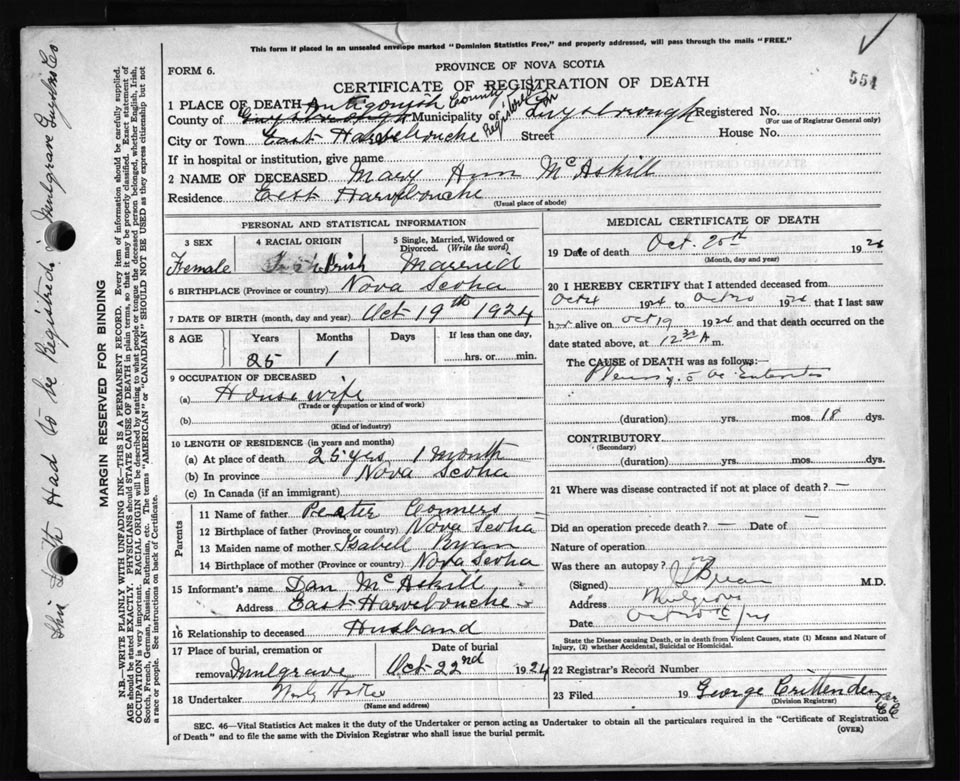 This form if placed in an unsealed envelope marked "Dominion Statistics Free," and properly addressed, will pass through the mails "FREE."
PROVINCE OF NOVA SCOTIA
FORM 6.
CERTIFICATE OF REGISTRATION OF DEATH
554
1 PLACE OF DEATH Antigonish County
County of Guysborough Municipality of Guysborough Registered No.
(For use of Registrar General only)
City or Town East Havrebouche Street House No.
If in hospital or institution, give name
2 NAME OF DECEASED Mary Ann McAskill
Residence East Havrebouche
(Usual place of abode)
PERSONAL AND STATISTICAL INFORMATION
3 SEX
4 RACIAL ORIGIN
5 Single, Married, Widowed or Divorced. (Write the word)
Female Irish Married
6 BIRTHPLACE (Province or country) Nova Scotia
7 DATE OF BIRTH (month, day and year) Oct 19th 1924
8 AGE Years Months Days If less than one day,
25 1 hrs. or min.
9 OCCUPATION OF DECEASED
(a) House wife
(Trade or occupation or kind of work)
(b)
(Kind of industry)
10 LENGTH OF RESIDENCE (in years and months)
(a) At place of death 25 yrs 1 month
(b) In province Nova Scotia
(c) In Canada (if an immigrant)
Parents
11 Name of father Peter Conners
12 Birthplace of father (Province or country) Nova Scotia
13 Maiden name of mother Isabell
14 Birthplace of mother (Province or country) Nova Scotia
15 Informant's name Dan McAskill
Address East Havrebouche
16 Relationship to deceased Husband
17 Place of burial, cremation or removal Mulgrave
Date of burial Oct 22nd 1924
18 Undertaker
(Name and address)
MEDICAL CERTIFICATE OF DEATH
19 Date of death Oct. 20th 1924
(Month, day and year)
20 I HEREBY CERTIFY that I attended deceased from
1924 to 1924 that I last saw
her alive on Oct 19 1924 and that death occurred on the
date stated above, at 12 30 A m.
The CAUSE of DEATH was as follows:—
(duration) yrs. mos. 18 dys.
CONTRIBUTORY
(Secondary)
(duration) yrs. mos. dys.
21 Where was disease contracted if not at place of death? —
Did an operation precede death? — Date of —
Nature of operation
Was there an autopsy? no
(Signed) M.D.
Address Mulgrave
Date
State the Disease causing Death, or in death from Violent Causes, state (1) Means and Nature of Injury, (2) whether Accidental, Suicidal or Homicidal.
22 Registrar's Record Number
23 Filed 19 George Crittenden
(Division Registrar)
SEC. 46—Vital Statistics Act makes it the duty of the Undertaker or person acting as Undertaker to obtain all the particulars required in the "Certificate of Registration of Death" and to file the same with the Division Registrar who shall issue the burial permit.
(OVER)
MARGIN RESERVED FOR BINDING
N.B.—WRITE PLAINLY WITH UNFADING INK—THIS IS A PERMANENT RECORD. Every item of information should be carefully supplied.
AGE should be stated EXACTLY. PHYSICIANS should STATE CAUSE OF DEATH in plain terms, so that it may be properly classified. Exact statement of
OCCUPATION is very important. RACIAL ORIGIN will be described by stating to what people or tongue the deceased person belonged, whether English, Irish,
Scotch, French, German, Russian, Ruthenian, etc. The terms "AMERICAN" or "CANADIAN" SHOULD NOT BE USED as they express citizenship but not
a race or people. See instructions on back of Certificate.
This Death Had to be Registred in Mulgrave Guysboro Co